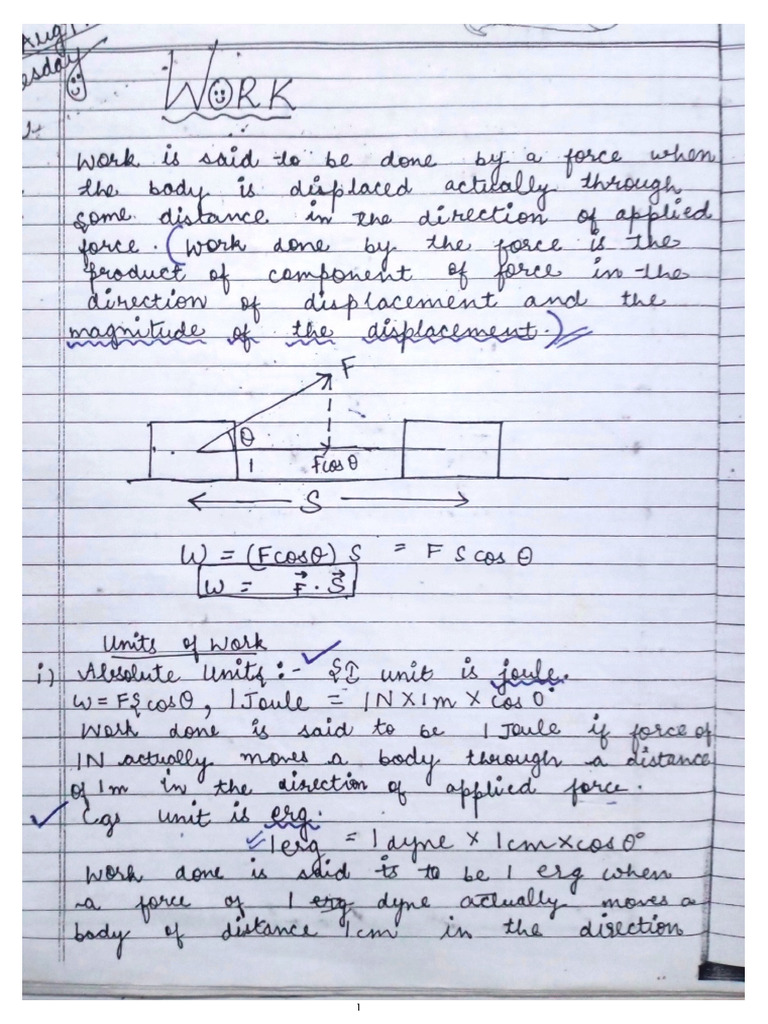 Aug
esday
WORK
Work is said to be done by a force when
the body is displaced actually through
some distance in the direction of applied
force. (Work done by the force is the
product of component of force in the
direction of displacement and the
magnitude of the displacement.)
F
θ
Fcosθ
S
W = (Fcosθ) S = F S cos θ
W = F⃗ . S⃗
Units of Work
i) Absolute Units :- SI unit is joule.
W = FS cosθ, 1 Joule = 1N X 1m X cos 0°
Work done is said to be 1 Joule if force of
1N actually moves a body through a distance
of 1m in the direction of applied force.
Cgs unit is erg.
1 erg = 1 dyne × 1cm × cos 0°
Work done is said is to be 1 erg when
a force of 1 erg dyne actually moves a
body of distance 1cm in the direction
1